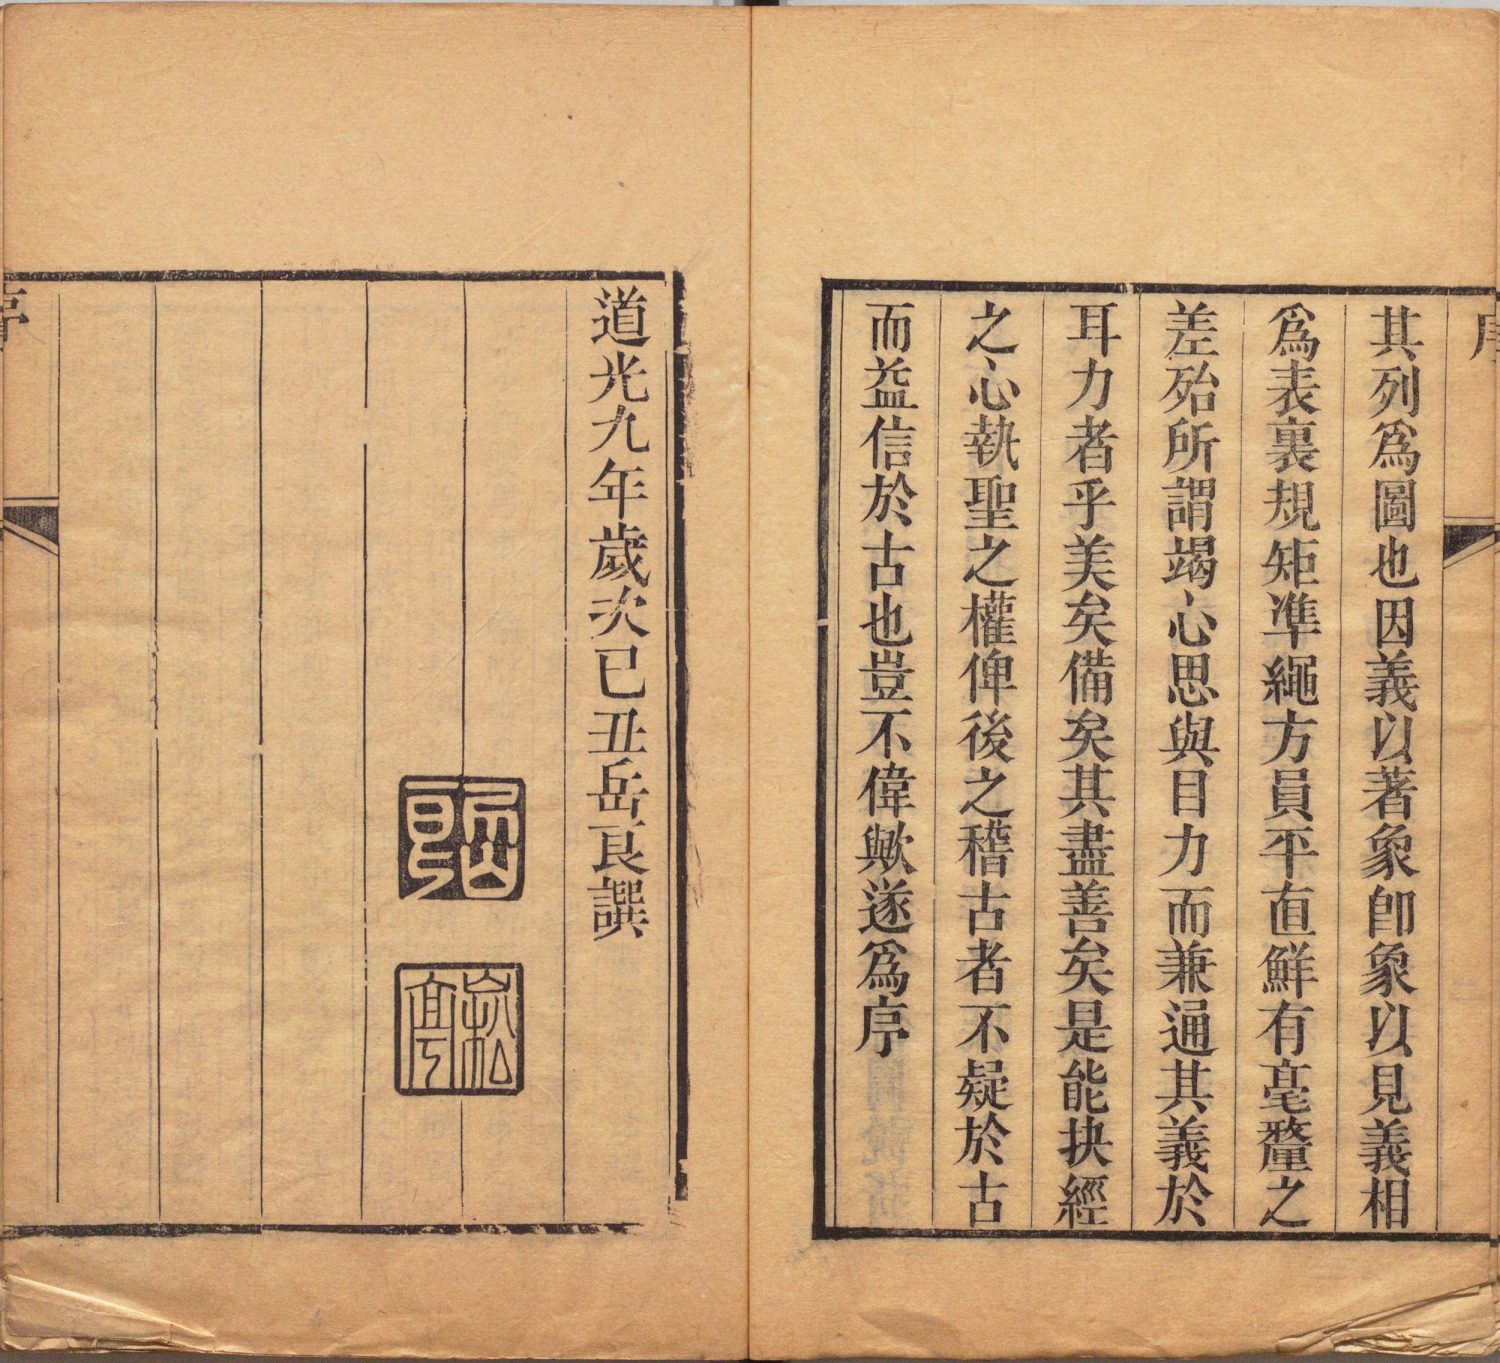 序
其列爲圖也因義以著象卽象以見義相
爲表裏規矩準繩方員平直鮮有毫釐之
差殆所謂竭心思與目力而兼通其義於
耳力者乎美矣備矣其盡善矣是能抉經
之心執聖之權俾後之稽古者不疑於古
而益信於古也豈不偉歟遂爲序
道光九年歲次己丑岳良譔
岳良
崧亭
序